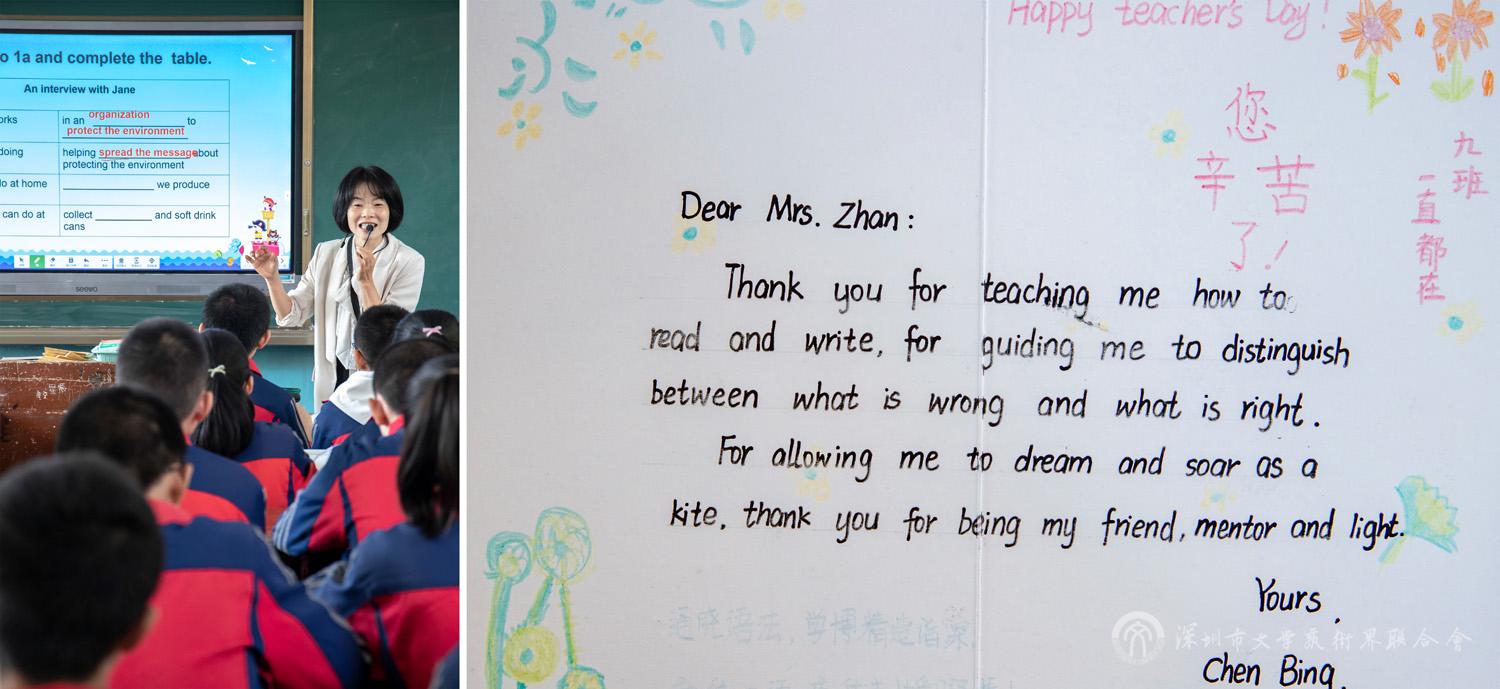 o 1a and complete the table.
An interview with Jane
orks
in an organization to
protect the environment
doing
helping spread the message about
protecting the environment
lo at home
we produce
can do at
collect and soft drink
cans
seewo
Happy teacher's Day!
您
辛苦
了!
九班
一直都在
Dear Mrs. Zhan:
Thank you for teaching me how to
read and write, for guiding me to distinguish
between what is wrong and what is right.
For allowing me to dream and soar as a
kite, thank you for being my friend, mentor and light.
Yours,
Chen Bing.
深圳市文学艺術界聯合會